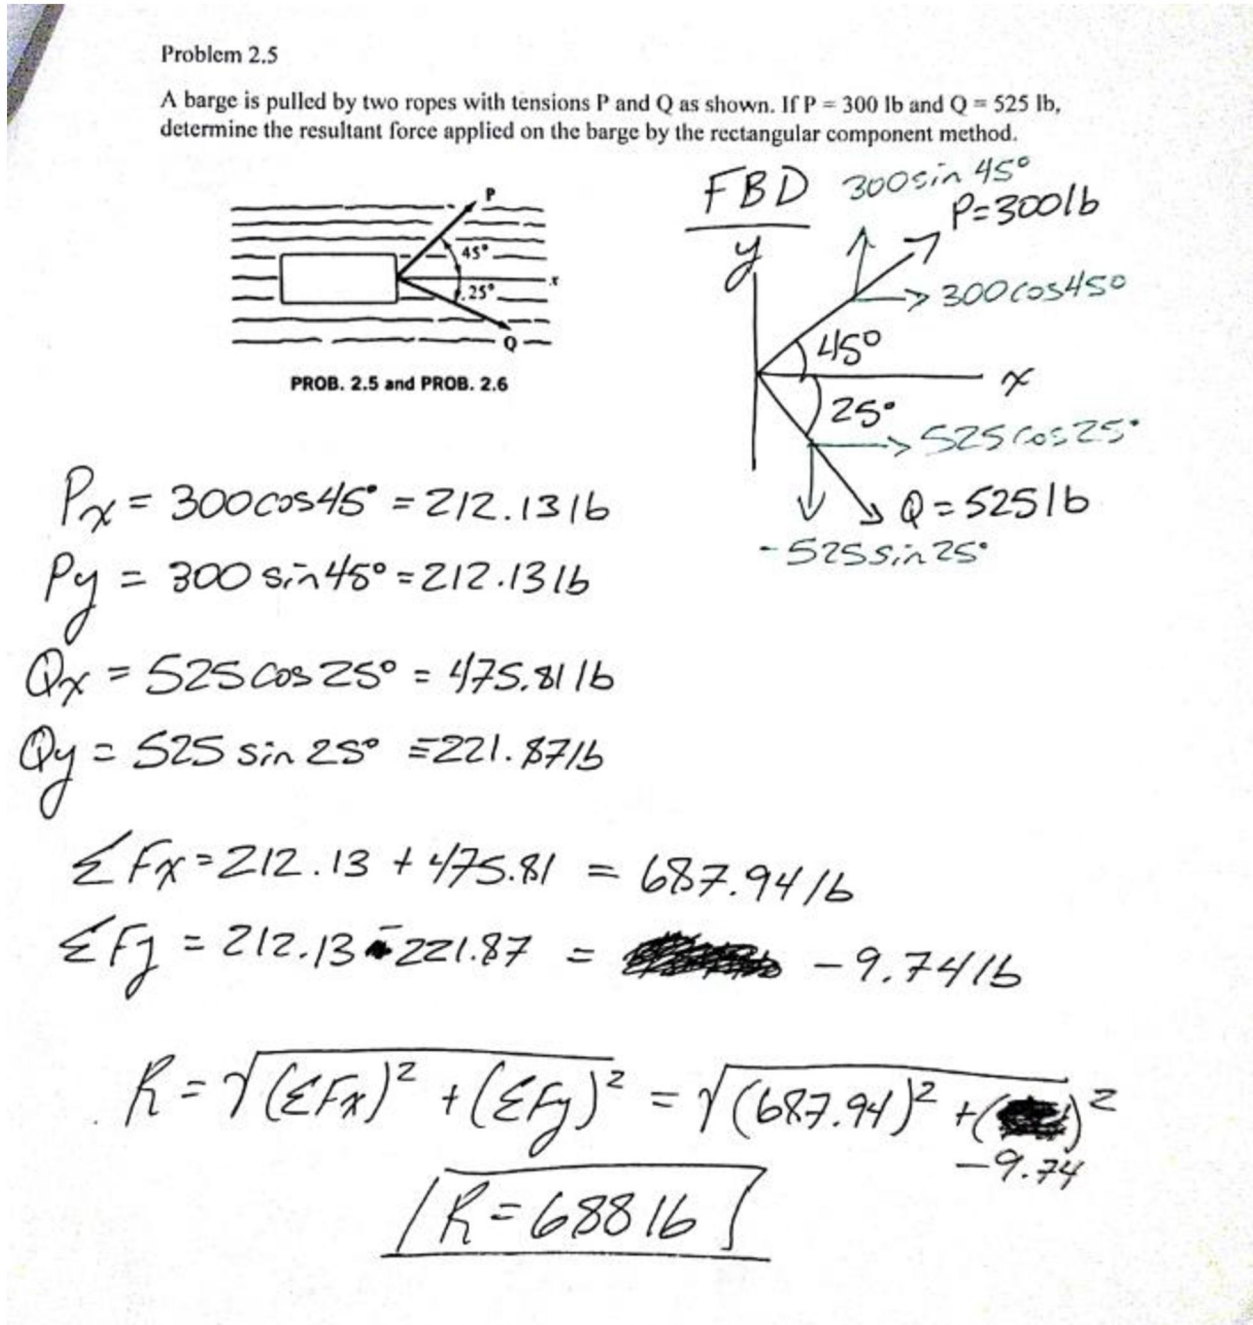 Problem 2.5
A barge is pulled by two ropes with tensions P and Q as shown. If P = 300 lb and Q = 525 lb,
determine the resultant force applied on the barge by the rectangular component method.
P
45°
x
25°
Q
PROB. 2.5 and PROB. 2.6
FBD
300 sin 45°
P=300lb
y
300cos45°
45°
x
25°
525 cos 25°
Q = 525 lb
-525 sin 25°
Px = 300cos45° = 212.13 lb
Py = 300 sin 45° = 212.13 lb
Qx = 525 cos 25° = 475.81 lb
Qy = 525 sin 25° = 221.87 lb
ΣFx = 212.13 + 475.81 = 687.94 lb
ΣFy = 212.13 - 221.87 = -9.74 lb
R = √(ΣFx)² + (ΣFy)² = √(687.94)² + ( )²
-9.74
R = 688 lb